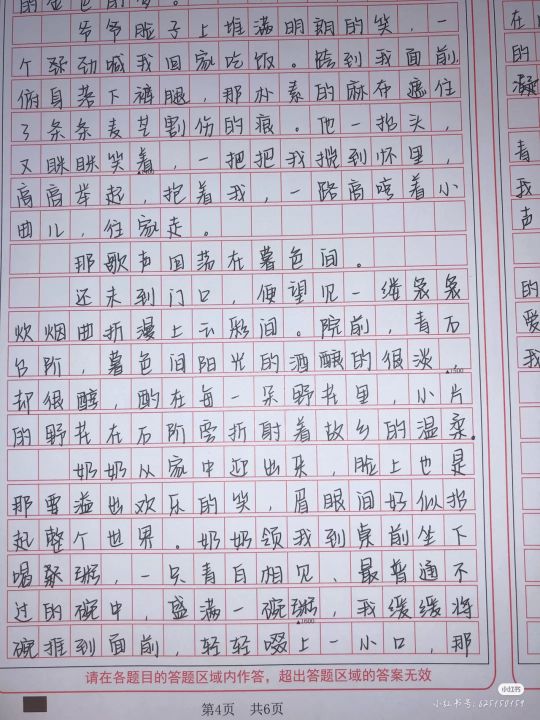 的金色的梦。
爷爷脸子上堆满明朗的笑，一
个劲劲喊我回家吃饭。跨到我面前，
俯身落下裤腿，那朴素的麻布遮住
了条条麦芒割伤的痕。他一抬头，
又眯眯笑着，一把把我揽到怀里，
高高举起，抱着我，一路高唱着小
曲儿，往家走。
那歌声回荡在暮色间。
还未到门口，便望见一缕袅袅
炊烟曲折漫上云彩间。院前，青石
台阶，暮色间阳光的酒酿的很淡，
却很醇，酌在每一朵野花里，小片
的野花在石阶旁折射着故乡的温柔。
奶奶从家中迎出来，脸上也是
那要溢出欢乐的笑，眉眼间好似拾
起整个世界。奶奶领我到桌前坐下
喝粥，一只青白相见、最普通不
过的碗中，盛满一碗粥，我缓缓将
碗推到面前，轻轻啜上一小口，那
▲1500
▲1600
请在各题目的答题区域内作答，超出答题区域的答案无效
第4页 共6页
在
的
凝
青
我
声
的
爱
我
小红书
小红书号：625150159